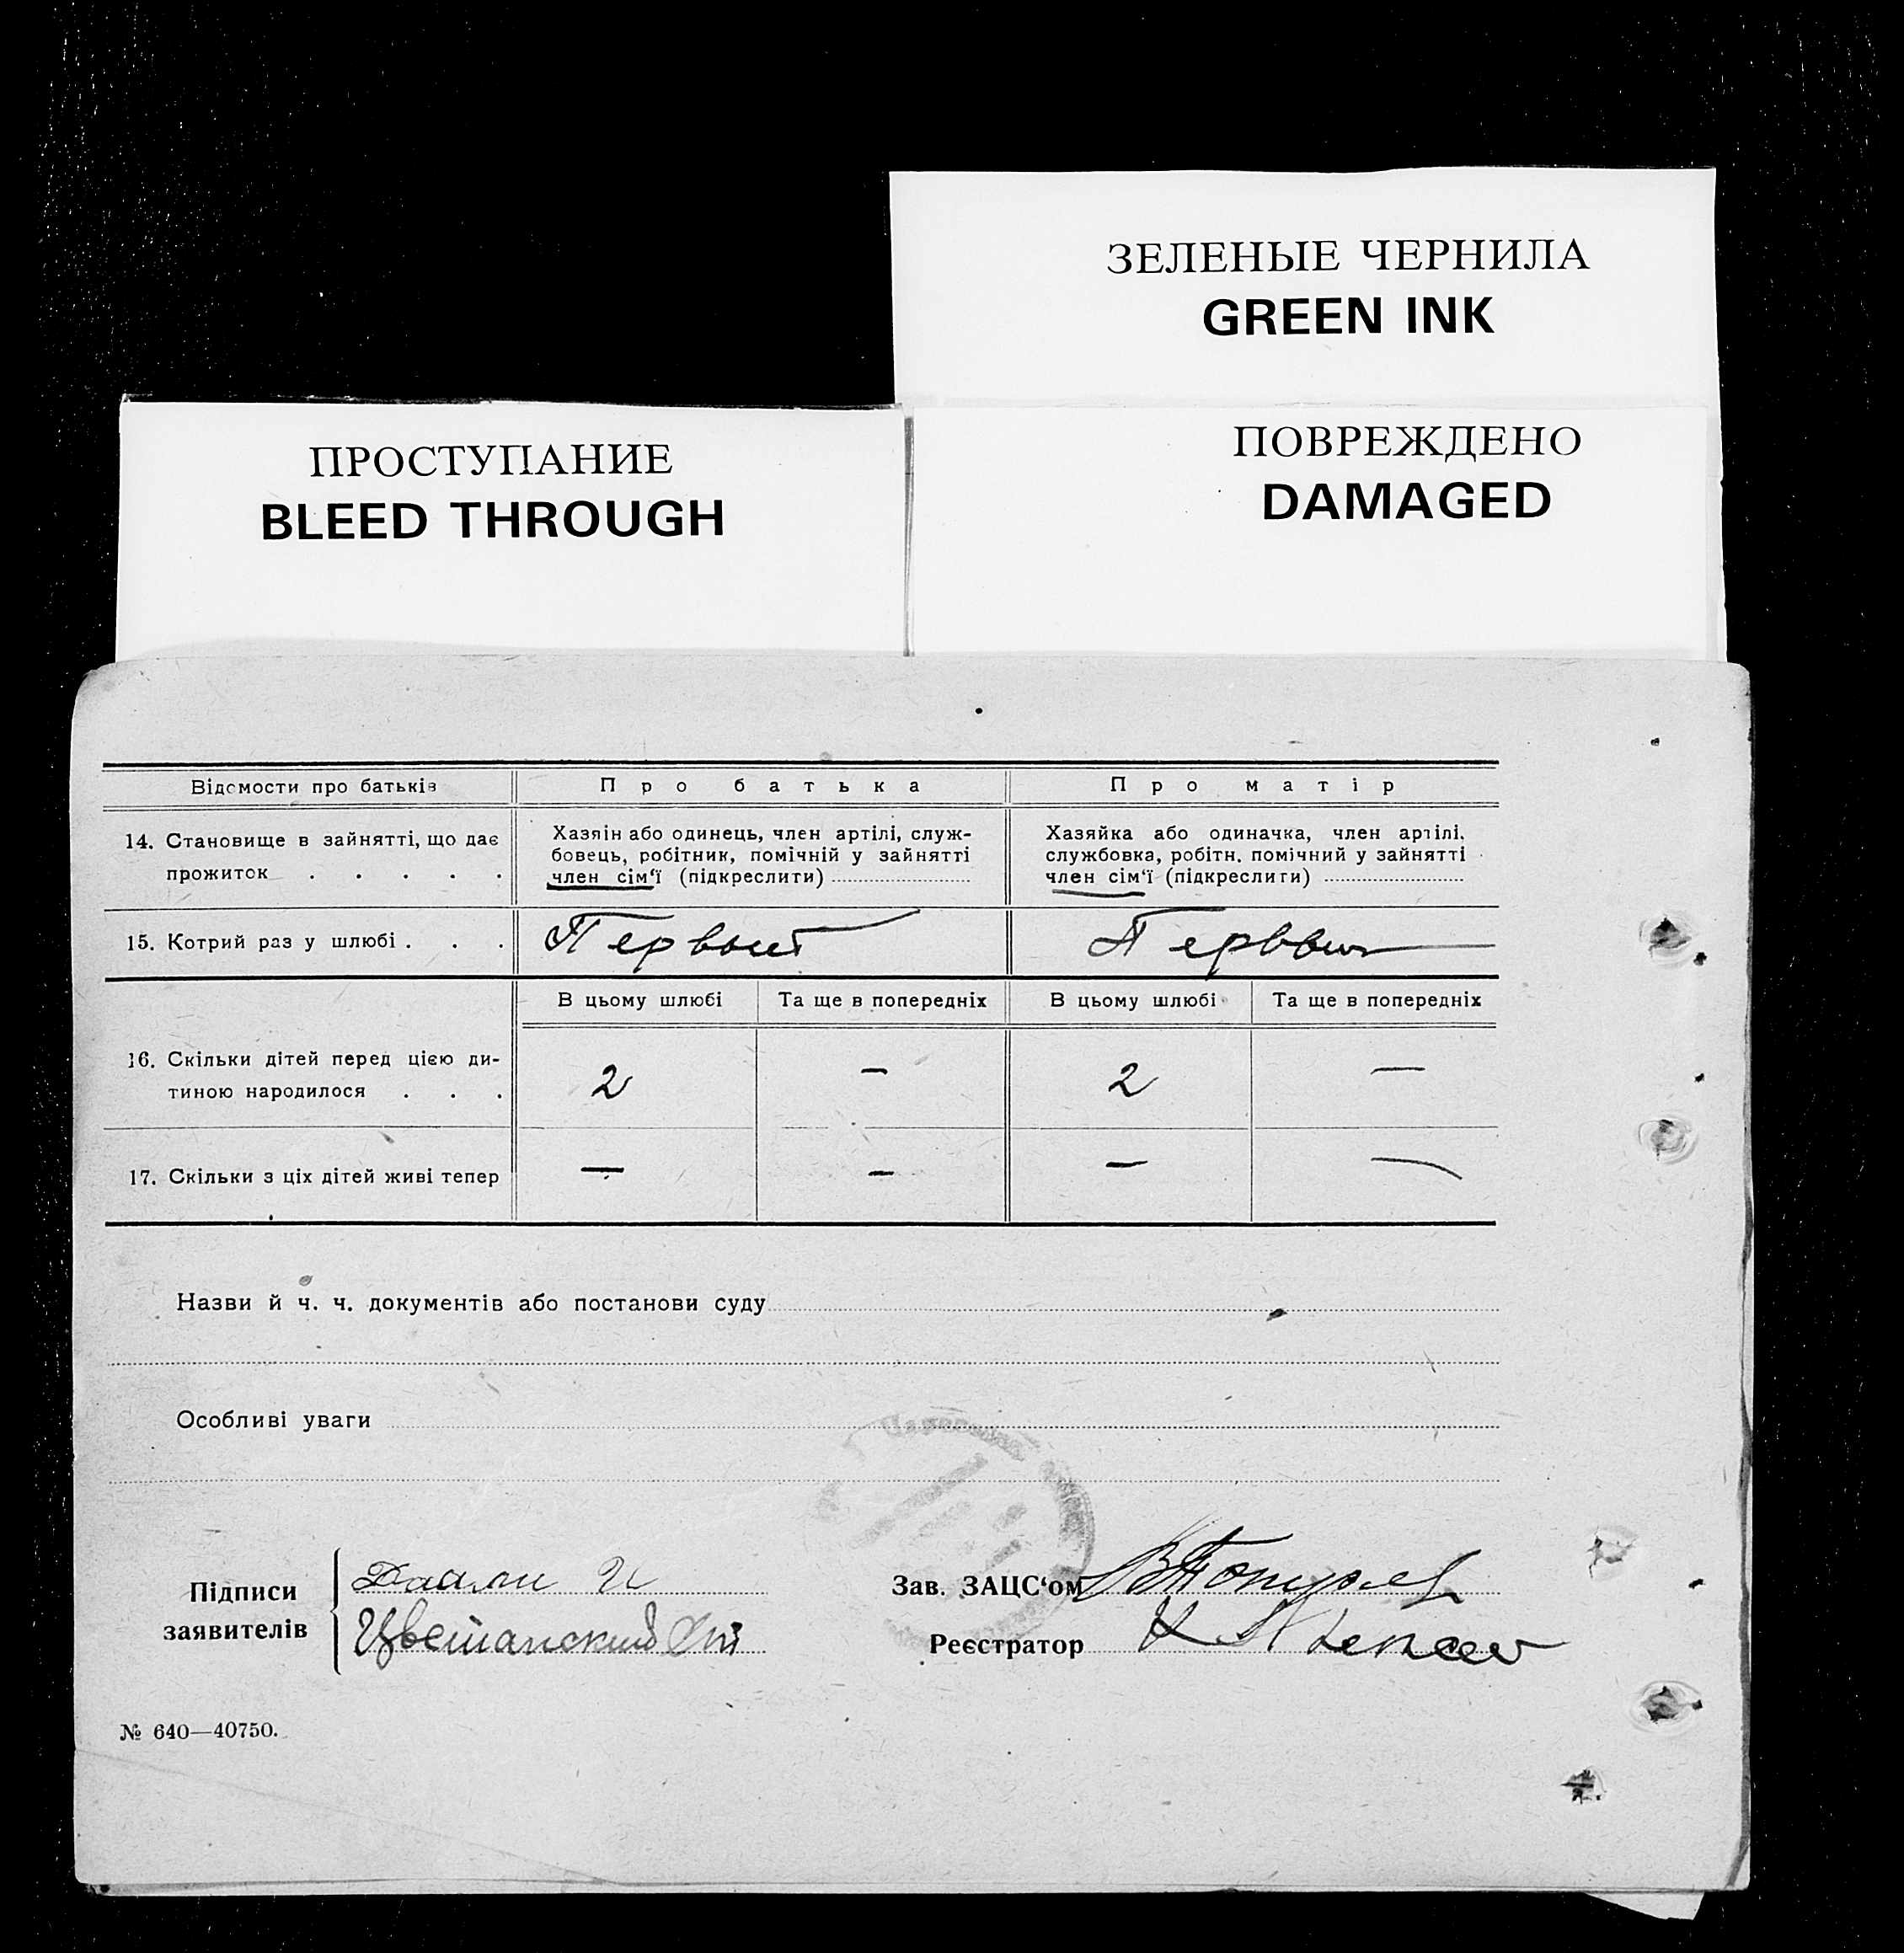 ЗЕЛЕНЫЕ ЧЕРНИЛА
GREEN INK
ПРОСТУПАНИЕ
BLEED THROUGH
ПОВРЕЖДЕНО
DAMAGED
Відомости про батьків
Про батька
Про матір
14. Становище в зайнятті, що дає
прожиток . . . . .
Хазяін або одинець, член артілі, служ-
бовець, робітник, помічній у зайнятті
член сім‘ї (підкреслити)
Хазяйка або одиначка, член артілі,
службовка, робітн. помічний у зайнятті
член сім‘ї (підкреслити)
15. Котрий раз у шлюбі . . .
Первый
Первый
В цьому шлюбі
Та ще в попередніх
В цьому шлюбі
Та ще в попередніх
16. Скільки дітей перед цією ди-
тиною народилося . . .
2
—
2
—
17. Скільки з ціх дітей живі тепер
—
—
—
—
Назви й ч. ч. документів або постанови суду
Особливі уваги
Підписи
заявителів
Цветанский
Зав. ЗАЦС‘ом
Реєстратор
№ 640—40750.